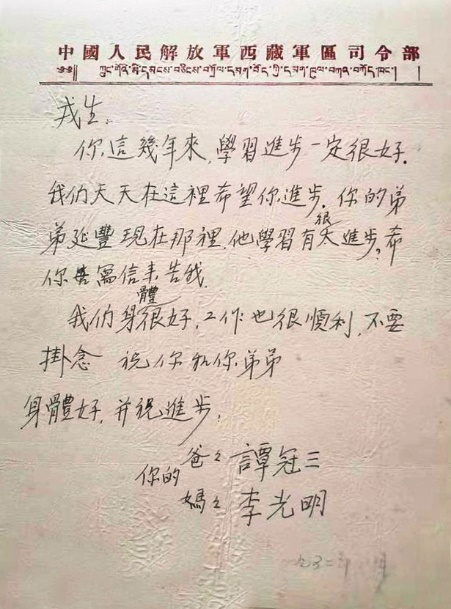 中國人民解放軍西藏軍區司令部
ཀྲུང་གོའི་མི་དམངས་བཅིངས་བཀྲོལ་དམག་བོད་ཀྱི་དམག་ཁུལ་བཀའ་བཀོད་ཁང་།
戎生：
你這幾年來，學習進步一定很好．
我们天天在這裡希望你進步．你的弟
弟延豐現在那裡．他學習有很大進步，希
你寫信來告我．
我们身體很好，工作也很順利，不要
掛念 祝你和你弟弟
身體好，并祝進步．
你的
爸々 譚冠三
媽々 李光明